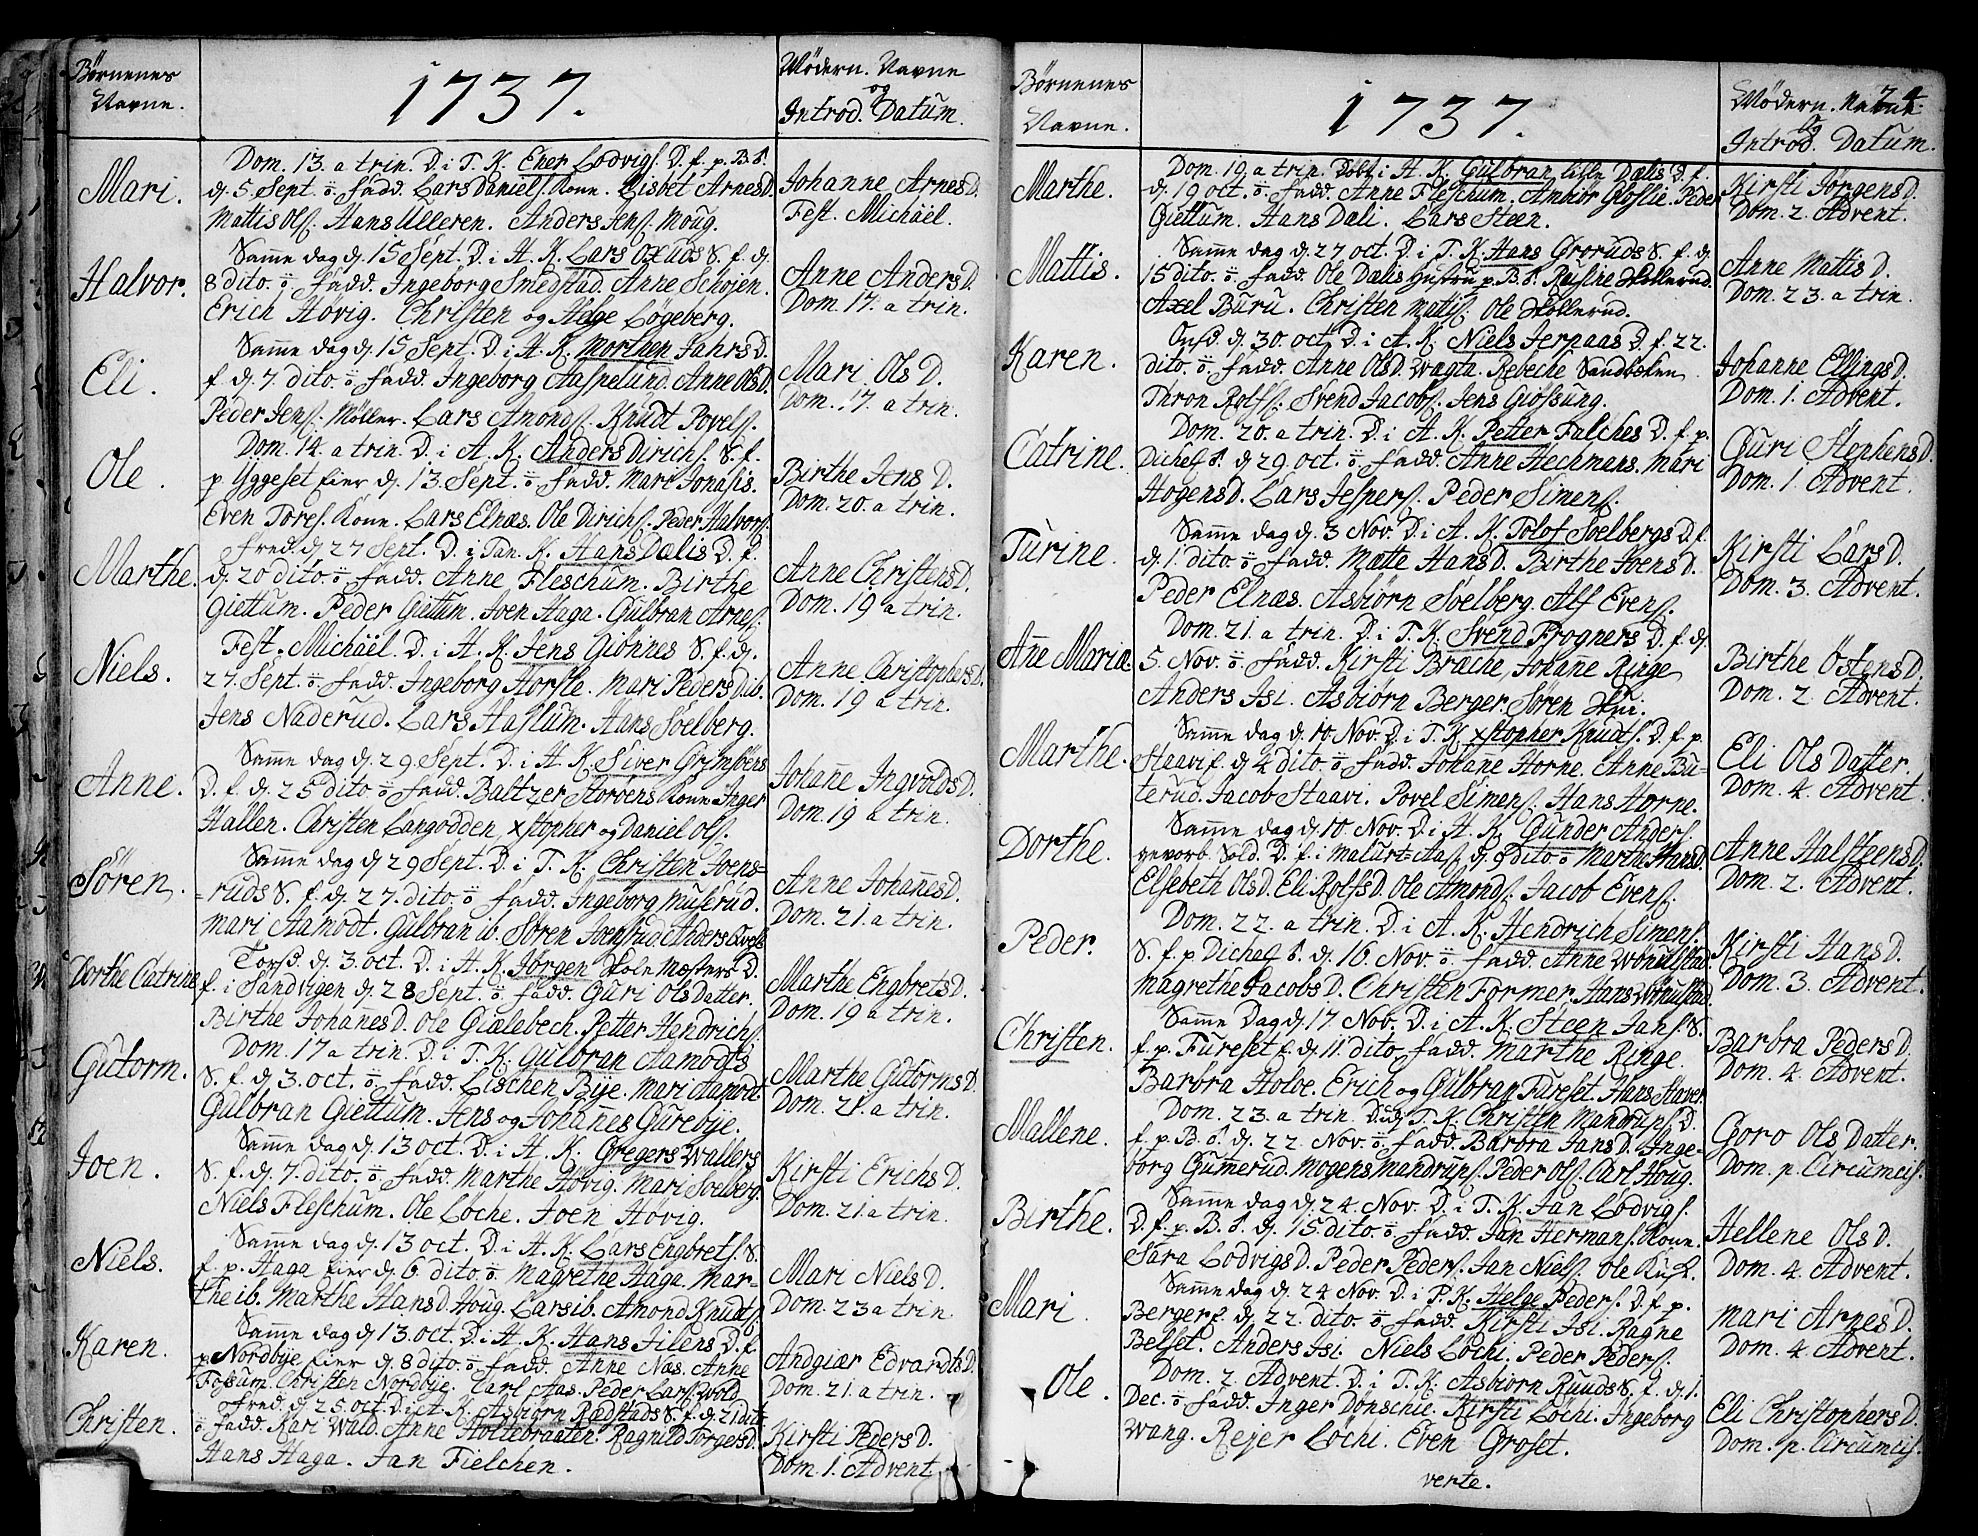 Börnenes
Navne.
1737.
Mödern. Navne
og
Introd. Datum.
Mari.
Dom. 13. a trin. D. i T. K. Ener Lodvigs. D. f. p. B. S.
d. 5 Sept. ö fadd. Lars Daniels. Kone. Lisbet Arnes D.
Mattis Ols. Hans Ulleren. Anders Jens. Moug.
Johanne Arnes D.
Fest. Michäel.
Halvor.
Samme dag d. 15 Sept. D. i H. K. Lars Oxuds S. f. d.
8 dito. ö fadd. Ingeborg Smedstad. Anne Schöjen.
Erich Hövig. Christen og Helge Lögeberg.
Anne Anders D.
Dom. 17. a trin.
Eli.
Samme dag d. 15 Sept. D. i H. K. Morthen Jahrs D.
f. d. 7. dito. ö fadd. Ingeborg Aaspelund. Anne Ols D.
Peder Jens. Möller. Lars Amonds. Knudt Povels.
Mari Ols D.
Dom. 17. a trin.
Ole.
Dom. 14. a trin. D. i A. K. Anders Dirichs. S. f.
p. Yggeset Eier d. 13. Sept. ö fadd. Mari Jonasis.
Even Tores. Kone. Lars Elnæs. Ole Dirichs. Peder Halvors.
Birthe Jens D.
Dom. 20. a trin.
Marthe.
Fred. d. 27 Sept. D. i Tan. K. Hans Dælis D. f.
d. 20 dito. ö fadd. Anne Fleschum. Birthe
Giettum. Peder Giettum. Joen Haga. Gulbran Arnes.
Anne Christens D.
Dom. 19 a trin.
Niels.
Fest. Michäel. D. i H. K. Jens Giönnes S. f. d.
27. Sept. ö fadd. Ingeborg Horsle. Mari Peders D. ib.
Jens Naderud. Lars Haslum. Hans Soelberg.
Anne Christophers D.
Dom. 19 a trin.
Anne.
Samme dag d. 29 Sept. D. i H. K. Siver Grimsöens
D. f. d. 25 dito ö fadd. Baltzer Storvens Kone. Inger
Hallen. Christen Langodden, xstopher og Daniel Ols.
Johanne Ingvolds D.
Dom. 19 a trin.
Sören.
Samme dag d. 29 Sept. D. i T. K. Christen Joens-
-ruds S. f. d. 27. dito. ö fadd. Ingeborg Muserud.
Mari Aamodt. Gulbran ib. Sören Joensrud. Anders
Anne Johannes D.
Dom. 21. a trin.
Dorthe Catrine
Torsd. d. 3. oct. D. i H. K. Jörgen Skole Mæsters D.
f. i Sandvigen d. 28 Sept. ö fadd. Guri Ols Datter.
Birthe Johannes D. Ole Giælebech. Petter Hendrichs.
Marthe Engbrets D.
Dom. 19 a trin.
Gutorm.
Dom. 17 a trin. D. i T. K. Gulbran Aamodts
S. f. d. 3. oct. ö fadd. Lischen Bije. Mari Aamodt.
Gulbran Giettum. Jens og Johannes Gurebije.
Marthe Gutorms D.
Dom. 21. a trin.
Joen.
Samme dag d. 13 oct. D. i H. K. Gregers Wallers
S. f. d. 7. dito. ö fadd. Marthe Hövig. Mari Soelberg.
Niels Fleschum. Ole Löche. Joen Hövig.
Kirsti Erichs D.
Dom. 21. a trin.
Niels.
Samme dag d. 13 oct. D. i H. K. Lars Engbrets. S.
f. p. Haga Eier d. 6. dito. ö. Magrethe Haga. Mar-
the ib. Marthe Hans D. Houg. Lars ib. Amond Knudts.
Mari Niels D.
Dom. 23 a trin.
Karen.
Samme dag d. 13 oct. D. i H. K. Hans Eilens D. f.
p. Nordbije Eier d. 8 dito. ö fadd Anne Næs. Anne
Fossum. Christen Nordbije. Carl Aas. Peder Lars. Wold
Andgiær Edvardts D.
Dom. 21. a trin.
Christen.
Fred. d. 25 oct. D. i A. K. Asbiörn Rædstads S. f. d. 21 dito
ö fadd. Kari Wald. Anne Holtebraaten. Ragnild Torgers D.
Hans Haga. Jan Fielchen.
Kirsti Peders D.
Dom. 1. Advent
Börnenes
Navne.
1737.
24.
Mödern. Navne
og
Introd. Datum.
Marthe.
Dom. 19. a trin. Döbt i H. K. Gulbran lille Dælis D. f.
d. 19 oct. ö fadd. Anne Fleschum. Ambiör Gloslie. Peder
Giettum. Hans Dæli. Lars Steen.
Kirsti Jörgens D.
Dom. 2. Advent.
Mattis.
Samme dag d. 27 oct. D. i T. K. Hans Groruds S. f. d.
15 dito. ö fadd. Ole Dælis Hustru p. B. S. Skollerud.
Axel Buru. Christen Mattis. Ole Skollerud.
Anne Mattis D.
Dom. 23. a trin.
Karen.
Onsd. d. 30. oct. D. i A. K. Niels Jerpaas D. f. 22.
dito. ö fadd. Anne Ols D. Wagta. Rebeche Sandboken
Thron Rolfs. Svend Jacobs. Jens Giössung.
Johanne Ellings D.
Dom. 1. Advent.
Catrine.
Dom. 20. a trin. D. i A. K. Petter Falches D. f. p.
Dichef S. d. 29. oct. ö fadd. Anne Hechmans. Mari
Hogens D. Lars Jespers. Peder Simens.
Guri Stephens D.
Dom. 1. Advent.
Turine.
Samme dag d. 3 Nov. D. i A. K. Tolof Soelbergs D. f.
d. 1. dito. ö fadd. Mætte Hans D. Birthe Joens D.
Peder Elnæs. Asbiörn Soelberg. Alf Evens.
Kirsti Lars D.
Dom. 3. Advent.
Anne Maria.
Dom. 21. a trin. D. i T. K. Svend Frogners D. f. d.
5. Nov. ö. fadd. Kirsti Bræche, Johanne Ringe
Anders Isi. Asbiörn Berger. Sören Skui.
Birthe Östens D.
Dom. 2 Advent.
Marthe.
Samme dag d. 10 Nov. D. i T. K. xstopher Knudts. D. f. p.
Staavi f. d. 4 dito. ö fadd. Johanne Horne. Anne Bu-
terud. Jacob Staavi. Povel Simens. Hans Horne.
Eli Ols Datter.
Dom. 4. Advent.
Dorthe.
Samme dag d. 10. Nov. D. i H. K. Gunder Anders.
gevorb. Sold. D. f. i Malurt-Aas d. 9 dito ö Marthe Hans D.
Elsebeth Ols D. Eli Rolfs D. Ole Amonds. Jacob Evens.
Anne Halsteens D.
Dom. 2. Advent.
Peder.
Dom. 22. a trin. D. i A. K. Hendrich Simens.
S. f. p Dichef S. d. 16. Nov. ö. fadd. Anne Wönulstad.
Magrethe Jacobs D. Christen Former. Hans Wönulstad.
Kirsti Hans D.
Dom. 3. Advent.
Christen.
Samme Dag d. 17. Nov. D. i A. K. Steen Jans. S.
f. p. Fureset f. d. 11. dito fadd. Marthe Ringe.
Barbra Holve. Erich og Gulbran Fureset. Hans Staver
Barbra Peders D.
Dom. 4. Advent.
Mallene.
Dom. 23. a trin. Dudj T. K. Christen Mandrups D.
f. p. B. S. d. 22. Nov. ö. fadd. Barbra Jans D. Inge-
borg Gumerud. Mogens Mandrups. Peder Ols. Carl Houg.
Goro Ols Datter.
Dom. p. Circumcis.
Birthe.
Samme dag d. 24. Nov. D. i T. K. Jan Lodvigs.
D. f. p. B. S. d. 15 dito. ö fadd. Jan Hermans. Kone.
Sara Lodvigs D. Peder Peders. Jan Niels. Ole Kusk.
Hellene Ols D.
Dom. 4. Advent.
Mari.
Samme dag d. 24 Nov. D. i P. K. Helge Peders. D. f. p.
Berger f. d. 22. dito. ö fadd. Kirsti Isi. Ragne
Belset. Anders Isi. Niels Löchi. Peder Peders.
Mari Arnes D.
Dom. 4. Advent.
Ole.
Dom. 2 Advent. D. i T. K. Asbiörn Ruuds S. f. d. 1.
Dec. ö fadd. Inger Dönschie. Kirsti Löchi. Ingeborg
Wang. Rejer Löchi. Even Groset.
Eli Christophers D.
Dom. p. Circumcis.
verte.